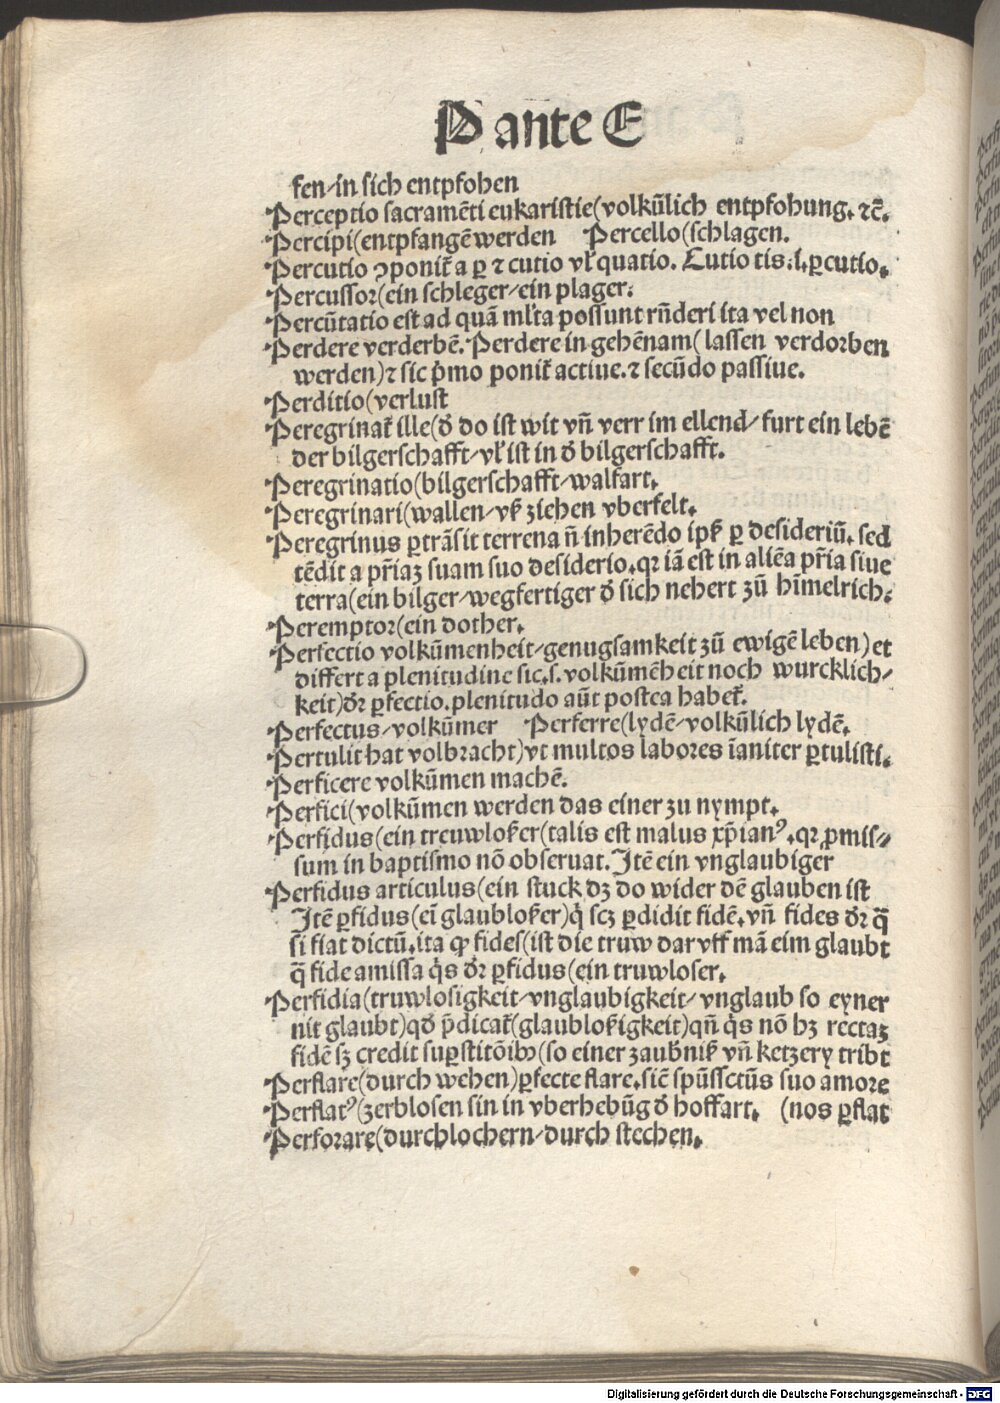 P an̄te E
fen/in sich entpfohen
Perceptio sacramēti eukaristie(volkūlich entpfohung. ⁊c̄.
Percipi(entpfangē werden Percello(schlagen.
Percutio ꝯponit᷑ a ꝑ ⁊ cutio vl̓ quatio. Cutio tis.i.ꝑcutio.
Percussoꝛ(ein schleger/ein plager.
Percūtatio est ad quā ml̓ta possunt rn̄deri ita vel non
Perdere verderbē. Perdere in gehēnam( lassen verdorben
werden)⁊ sic p̄mo ponit᷑ actiue.⁊ secūdo passiue.
Perditio(verlust
Peregrinat᷑ ille(d̓ do ist wit vn̄ verr im ellend/ furt ein lebē
der bilgerschafft/vl̓ ist in d̓ bilgerschafft.
Peregrinatio(bilgerschafft/walfart.
Peregrinari(wallen/vß ziehen vberfelt.
Peregrinus ꝑtrāsit terrena n̄ inherēdo ipß ꝑ desideriū. sed
tēdit a pr̄iaꝫ suam suo desiderio.qꝛ iā est in aliēa pr̄ia siue
terra(ein bilger/wegfertiger d̓ sich nehert zū hīmelrich.
Peremptoꝛ(ein dother.
Perfectio volkūmenheit/genugsamkeit zū ewigē leben) et
differt a plenitudine sic.s.volkūmēheit noch wurcklich/
keit)dr̄ ꝑfectio.plenitudo aūt postea habet᷑.
Perfectus/volkūmer Perferre(lydē/volkūlich lydē.
Pertulit hat volbracht)vt multos labores īaniter ꝑtulisti.
Perficere volkūmen machē.
Perfici(volkūmen werden das einer zu nympt.
Perfidus(ein treuwloßer(talis est malus xp̄ianꝰ.qꝛ ꝓmis/
sum in baptismo nō obseruat. Itē ein vnglaubiger
Perfidus articulus(ein stuck dꝫ do wider dē glauben ist
Itē ꝑfidus(eī glaubloßer)q̇ scꝫ ꝑdidit fidē.vn̄ fides dr̄ q̄
si fiat dictū.ita ꝙ fides(ist die truw dar vff mā eim glaubt
q̄ fide amissa q̇s dr̄ ꝑfidus(ein truwloser.
Perfidia(truwlosigkeit/vnglaubigkeit/ vnglaub so eyner
nit glaubt)qd̓ p̄dicat᷑(glaubloßigkeit)qn̄ q̇s nō hꝫ rectaꝫ
fidē sꝫ credit suꝑstitōibꝰ(so einer zaub̓niß vn̄ ketzery tribt
Perflare(durch wehen)ꝑfecte flare.sic̄ spūssctūs suo amore
Perflatꝰ(zerblosen sin in vberhebūg d̓ hoffart. (nos ꝑflat
Perforare(durchlochern/durch stechen.
Digitalisierung gefördert durch die Deutsche Forschungsgemeinschaft - DFG